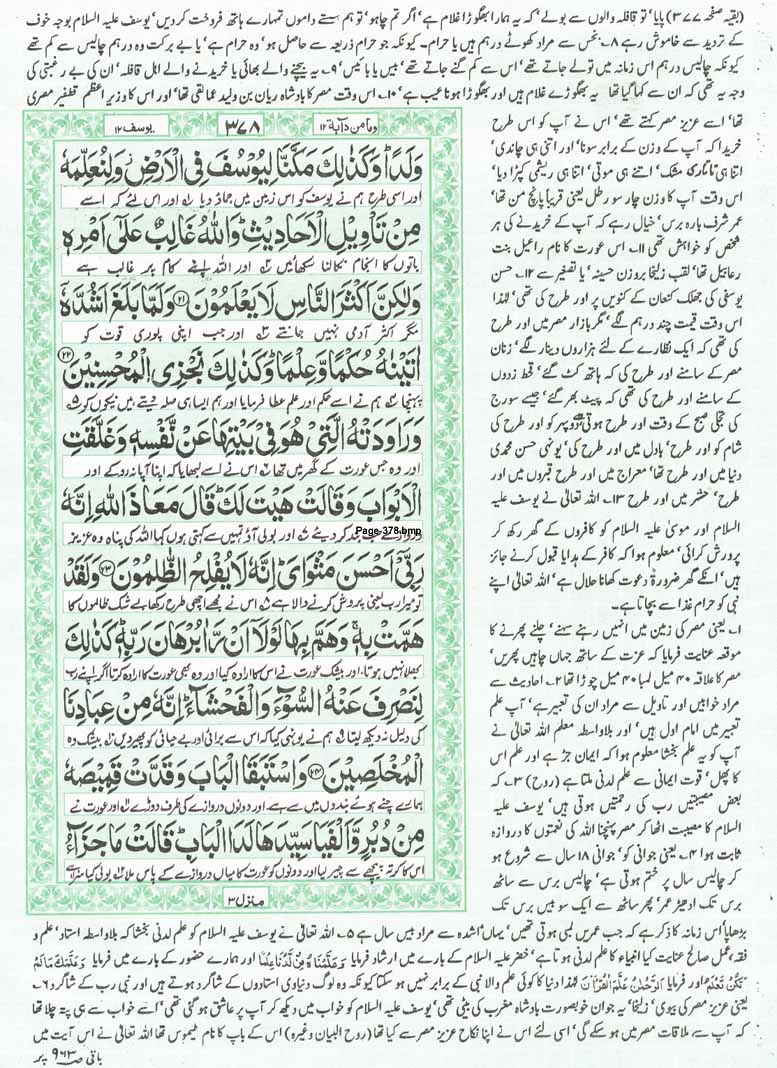 (بقیہ صفحہ ۳۷۷) پایا، تو قافلہ والوں سے بولے، کہ یہ ہمارا بھگوڑا غلام ہے، اگر تم چاہو، تو ہم سستے داموں تمہارے ہاتھ فروخت کر دیں، یوسف علیہ السلام بوجہ خوف
کے تردید سے خاموش رہے ۸۔ بخس سے مراد کھوٹے درہم ہیں یا حرام۔ کیونکہ جو حرام ذریعہ سے حاصل ہو، وہ حرام ہے، یا بے برکت وہ درہم چالیس سے کم تھے
کیونکہ چالیس درہم اس زمانہ میں تولے جاتے تھے، اس سے کم گنے جاتے تھے، بیس یا بائیس، ۹۔ یہ بیچنے والے بھائی یا خریدنے والے اہل قافلہ، ان کی بے رغبتی کی
وجہ یہ تھی کہ ان سے کہا گیا تھا یہ بھگوڑے غلام ہیں اور بھگوڑا ہونا عیب ہے، ۱۰۔ اس وقت مصر کا بادشاہ ریان بن ولید عمالقی تھا، اور اس کا وزیر اعظم قطفیر مصری
یوسف ۱۲
۳۷۸
ومامن دآبة ۱۲
وَلَدًا وَكَذٰلِكَ مَكَّنَّا لِيُوْسُفَ فِي الْاَرْضِ وَلِنُعَلِّمَهٗ
اور اسی طرح ہم نے یوسف کو اس زمین میں جماؤ دیا اور اس لئے کہ اسے
مِنْ تَاْوِيْلِ الْاَحَادِيْثِ وَاللّٰهُ غَالِبٌ عَلٰٓى اَمْرِهٖ
باتوں کا انجام نکالنا سکھائیں اور اللہ اپنے کام پر غالب ہے
وَلٰكِنَّ اَكْثَرَ النَّاسِ لَا يَعْلَمُوْنَ ۲۱ وَلَمَّا بَلَغَ اَشُدَّهٗٓ
مگر اکثر آدمی نہیں جانتے اور جب اپنی پوری قوت کو
اٰتَيْنٰهُ حُكْمًا وَّعِلْمًا وَكَذٰلِكَ نَجْزِي الْمُحْسِنِيْنَ ۲۲
پہنچا ہم نے اسے حکم اور علم عطا فرمایا اور ہم ایسا ہی صلہ دیتے ہیں نیکوں کو
وَرَاوَدَتْهُ الَّتِيْ هُوَ فِيْ بَيْتِهَا عَنْ نَّفْسِهٖ وَغَلَّقَتِ
اور وہ جس عورت کے گھر میں تھا اس نے اسے لبھایا کہ اپنا آپا نہ روکے اور
الْاَبْوَابَ وَقَالَتْ هَيْتَ لَكَ قَالَ مَعَاذَ اللّٰهِ اِنَّهٗ
دروازے سب بند کر دیئے اور بولی آؤ تمہیں سے کہتی ہوں کہا اللہ کی پناہ وہ عزیز
Page-378.bmp
رَبِّيْٓ اَحْسَنَ مَثْوَايَ اِنَّهٗ لَا يُفْلِحُ الظّٰلِمُوْنَ ۲۳ وَلَقَدْ
تو میرا رب یعنی پرورش کرنے والا ہے اس نے مجھے اچھی طرح رکھا بے شک ظالموں کا
هَمَّتْ بِهٖ وَهَمَّ بِهَا لَوْلَآ اَنْ رَّاٰ بُرْهَانَ رَبِّهٖ كَذٰلِكَ
بھلا نہیں ہوتا، اور بیشک عورت نے اس کا ارادہ کیا اور وہ بھی عورت کا ارادہ کرتا اگر اپنے رب
لِنَصْرِفَ عَنْهُ السُّوْٓءَ وَالْفَحْشَآءَ اِنَّهٗ مِنْ عِبَادِنَا
کی دلیل نہ دیکھ لیتا ہم نے یونہی کیا کہ اس سے برائی اور بے حیائی کو پھیر دیں بیشک وہ
الْمُخْلَصِيْنَ ۲۴ وَاسْتَبَقَا الْبَابَ وَقَدَّتْ قَمِيْصَهٗ
ہمارے چنے ہوئے بندوں میں سے ہے، اور دونوں دروازے کی طرف دوڑے اور عورت نے
مِنْ دُبُرٍ وَّاَلْفَيَا سَيِّدَهَا لَدَا الْبَابِ قَالَتْ مَا جَزَآءُ
اس کا کرتہ پیچھے سے چیر لیا اور دونوں کو عورت کا میاں دروازے کے پاس ملا بولی کیا سزا ہے
منزل ۳
تھا، اسے عزیز مصر کہتے تھے، اس نے آپ کو اس طرح
خریدا کہ آپ کے وزن کے برابر سونا، اور اتنی ہی چاندی،
اتنا ہی تاتاری مشک، اتنے ہی موتی، اتنا ہی ریشمی کپڑا دیا،
اس وقت آپ کا وزن چار سو رطل یعنی قریباً پانچ من تھا،
عمر شرف بارہ برس، خیال رہے کہ آپ کے خریدنے کی ہر
شخص کو خواہش تھی ۱۱۔ اس عورت کا نام راعیل بنت
رعابیل تھا، لقب زلیخا بروزن حسینہ، یا تصغیر سے ۱۲۔ حسن
یوسفی کی جھلک کنعان کے کنویں پر اور طرح کی تھی، لہٰذا
اس وقت قیمت چند درہم لگے، مگر بازار مصر میں اور طرح
کی تھی کہ ایک نظارے کے لئے ہزاروں دینار لگے، زنان
مصر کے سامنے اور طرح کی کہ ہاتھ کٹ گئے، قحط زدوں
کے سامنے اور طرح کی تھی کہ پیٹ بھر گئے، جیسے سورج
کی تجلی صبح کے وقت اور طرح ہوتی ہے، دوپہر کو اور طرح کی
شام کو اور طرح، بادل میں اور طرح کی، یونہی حسن محمدی
دنیا میں اور طرح تھا، معراج میں اور طرح قبروں میں اور
طرح، حشر میں اور طرح ۱۳۔ اللہ تعالیٰ نے یوسف علیہ
السلام اور موسیٰ علیہ السلام کو کافروں کے گھر رکھ کر
پرورش کرائی، معلوم ہوا کہ کافر کے ہدایا قبول کرنے جائز
ہیں، انکے گھر ضرورۃً دعوت کھانا حلال ہے، اللہ تعالیٰ اپنے
نبی کو حرام غذا سے بچاتا ہے۔
۱۔ یعنی مصر کی زمین میں انہیں رہنے سہنے، چلنے پھرنے کا
موقعہ عنایت فرمایا کہ عزت کے ساتھ جہاں چاہیں پھریں،
مصر کا علاقہ ۴۰ میل لمبا ۴۰ میل چوڑا تھا ۲۔ احادیث سے
مراد خوابیں اور تاویل سے مراد ان کی تعبیر ہے، آپ علم
تعبیر میں امام اول ہیں، اور بلاواسطہ معلم اللہ تعالیٰ نے
آپ کو یہ علم بخشا معلوم ہوا کہ ایمان جڑ ہے اور علم اس
کا پھل، قوت ایمانی سے علم لدنی ملتا ہے (روح) ۳۔ کہ
بعض مصیبتیں رب کی رحمتیں ہوتی ہیں، یوسف علیہ
السلام کا مصیبت اٹھا کر مصر پہنچنا اللہ کی نعمتوں کا دروازہ
ثابت ہوا ۴۔ یعنی جوانی کو، جوانی ۱۸ سال سے شروع ہو
کر چالیس سال پر ختم ہوتی ہے، چالیس برس سے ساٹھ
برس تک ادھیڑ عمر، پھر ساٹھ سے ایک سو بیس برس تک
بڑھاپا، اس زمانہ کا ذکر ہے جب عمریں لمبی ہوتی تھیں، یہاں اشدہ سے مراد بیس سال ہے ۵۔ اللہ تعالیٰ نے یوسف علیہ السلام کو علم لدنی بخشا کہ بلاواسطہ استاد، علم و
فقہ، عمل صالح عنایت کیا انبیاء کا علم لدنی ہوتا ہے، خضر علیہ السلام کے بارے میں ارشاد فرمایا وَعَلَّمْنٰهُ مِنْ لَّدُنَّا عِلْمًا اور ہمارے حضور کے بارے میں فرمایا وَعَلَّمَكَ مَالَمْ
تَكُنْ تَعْلَمُ اور فرمایا اَلرَّحْمٰنُ عَلَّمَ الْقُرْاٰنَ لہٰذا دنیا کا کوئی علم والا نبی کے برابر نہیں ہو سکتا کیونکہ وہ لوگ دنیاوی استادوں کے شاگرد ہوتے ہیں اور نبی رب کے شاگرد ۶۔
یعنی عزیز مصر کی بیوی، زلیخا، یہ جوان خوبصورت بادشاہ مغرب کی بیٹی تھی، یوسف علیہ السلام کو خواب میں دیکھ کر آپ پر عاشق ہو گئی تھی، اسے خواب سے ہی پتہ چلا تھا
کہ آپ سے ملاقات مصر میں ہو سکے گی، اسی لئے اس نے اپنا نکاح عزیز مصر سے کیا تھا (روح البیان وغیرہ) اس کے باپ کا نام طیموس تھا اللہ تعالیٰ نے اس آیت میں
باقی ص ۹۶۳ پر